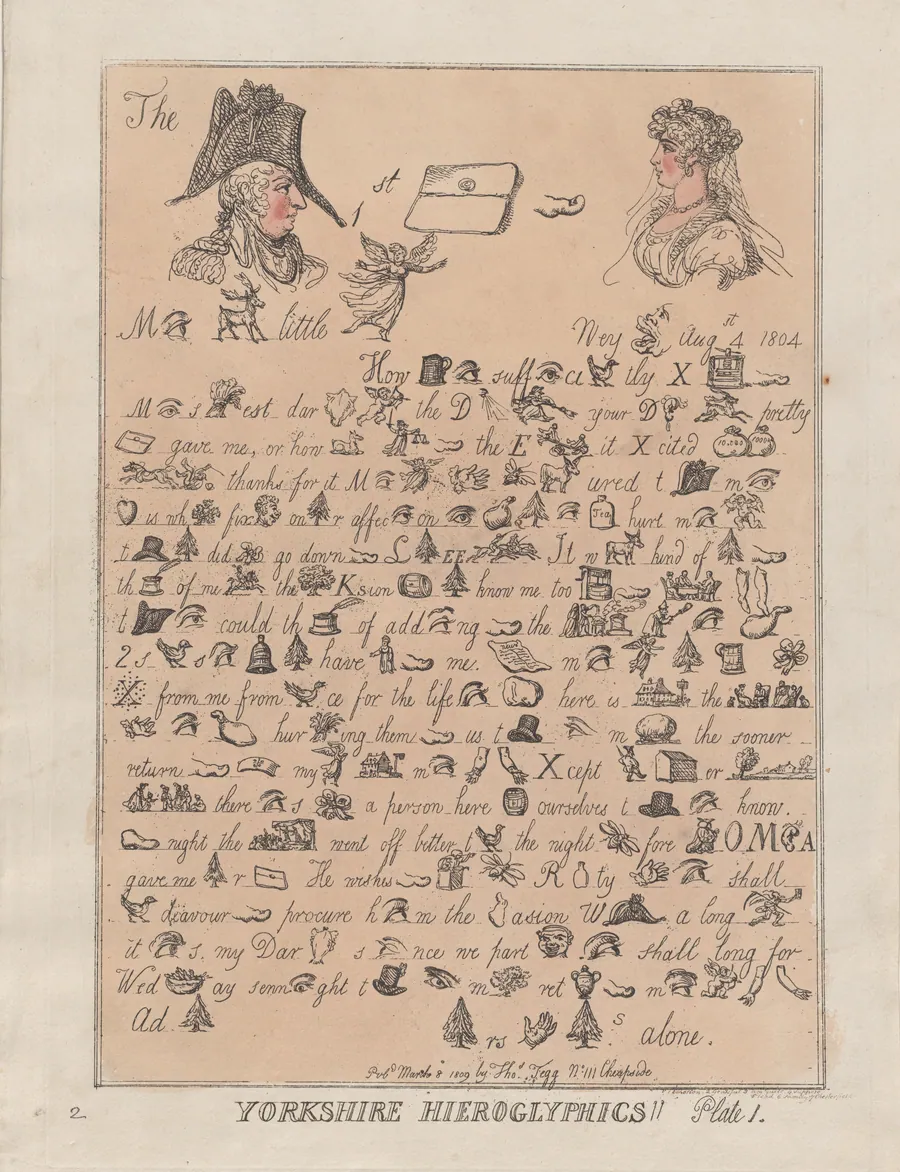 The
1 st
M little
Wey Aug st 4 1804
How suff ci tly X
M s est dar the D your D pretty
gave me, or how the E it X cited 10.000 1000
thanks for it M ured t m
is wh fix on r affec on Tea hurt m
t did go down L EE It w kind of
th of me the K sion know me too
t could th of add ng the
2 s s have me. m
X from me from ce for the life here is the
hur ing them us t m the sooner
return my m X cept er
there s a person here ourselves t know.
night the went off better t the night fore OM A
gave me r He wishes R ty shall
deavour procure h m the asion W a long
it s. my Dar s nce we part shall long for
Wed ay senn ght t m ret m
Ad rs s alone.
Pubd March 8 1809 by Thos Tegg No 111 Cheapside
2 YORKSHIRE HIEROGLYPHICS!! Plate 1.